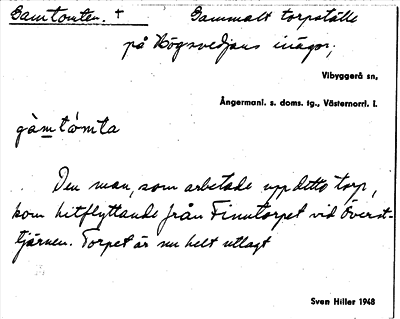 Gamtomten. + Gammalt torpställe
på Högsvedjans inägor,
Vibyggerå sn,
Ångermanl. s. doms. tg., Västernorrl. l.
gàmtómta
Den man, som arbetade upp detta torp,
kom hitflyttande från Finntorpet vid Överst-
tjärnen. Torpet är nu helt utlagt
Sven Hiller 1948